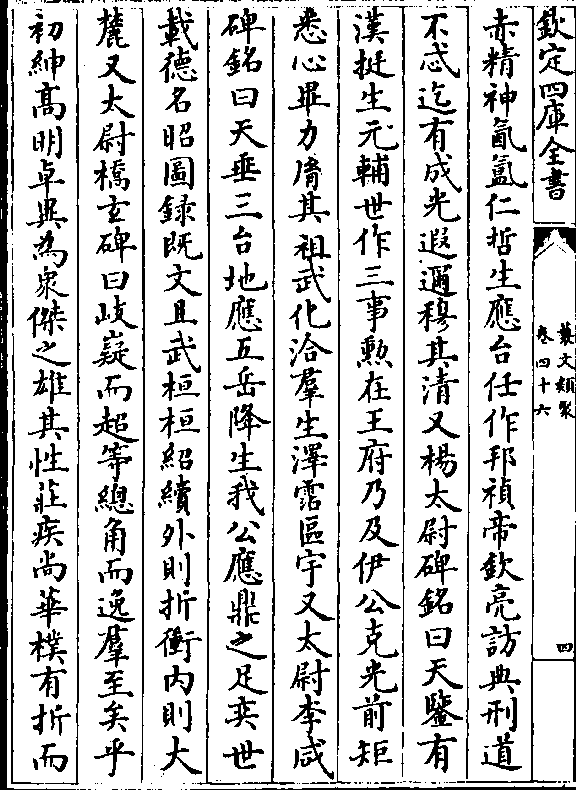 欽定四庫全書
藝文類聚
卷四十六
四
赤精神氤氳仁哲生應台任作邦禎帝欽亮訪典刑道
不忒迄有成光遐邇穆其清又楊太尉碑銘曰天鑒有
漢挺生元輔世作三事勲在王府乃及伊公克光前矩
悉心畢力膺其祖武化洽羣生澤霑區宇又太尉李咸
碑銘曰天垂三台地應五岳降生我公應鼎之足奕世
載德名昭圖録既文且武桓桓紹續外則折衝内則大
麓又太尉橋玄碑曰岐嶷而超等總角而逸羣至矣乎
初紳高明卓異為衆傑之雄其性莊疾尚華樸有折而